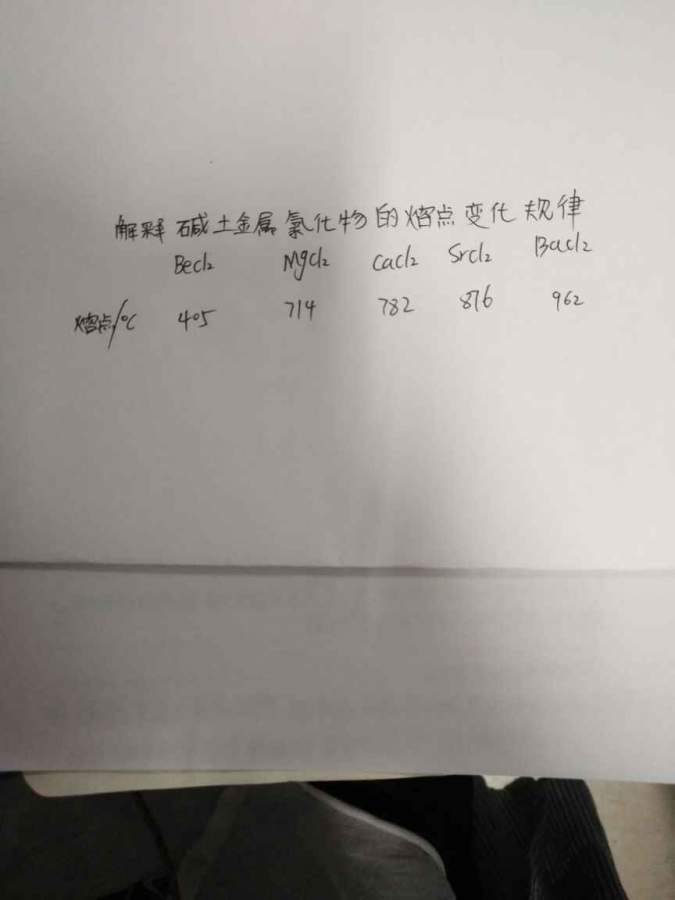 解释碱土金属氯化物的熔点变化规律
Becl₂ Mgcl₂ cacl₂ Srcl₂ Bacl₂
熔点/℃ 405 714 782 876 962